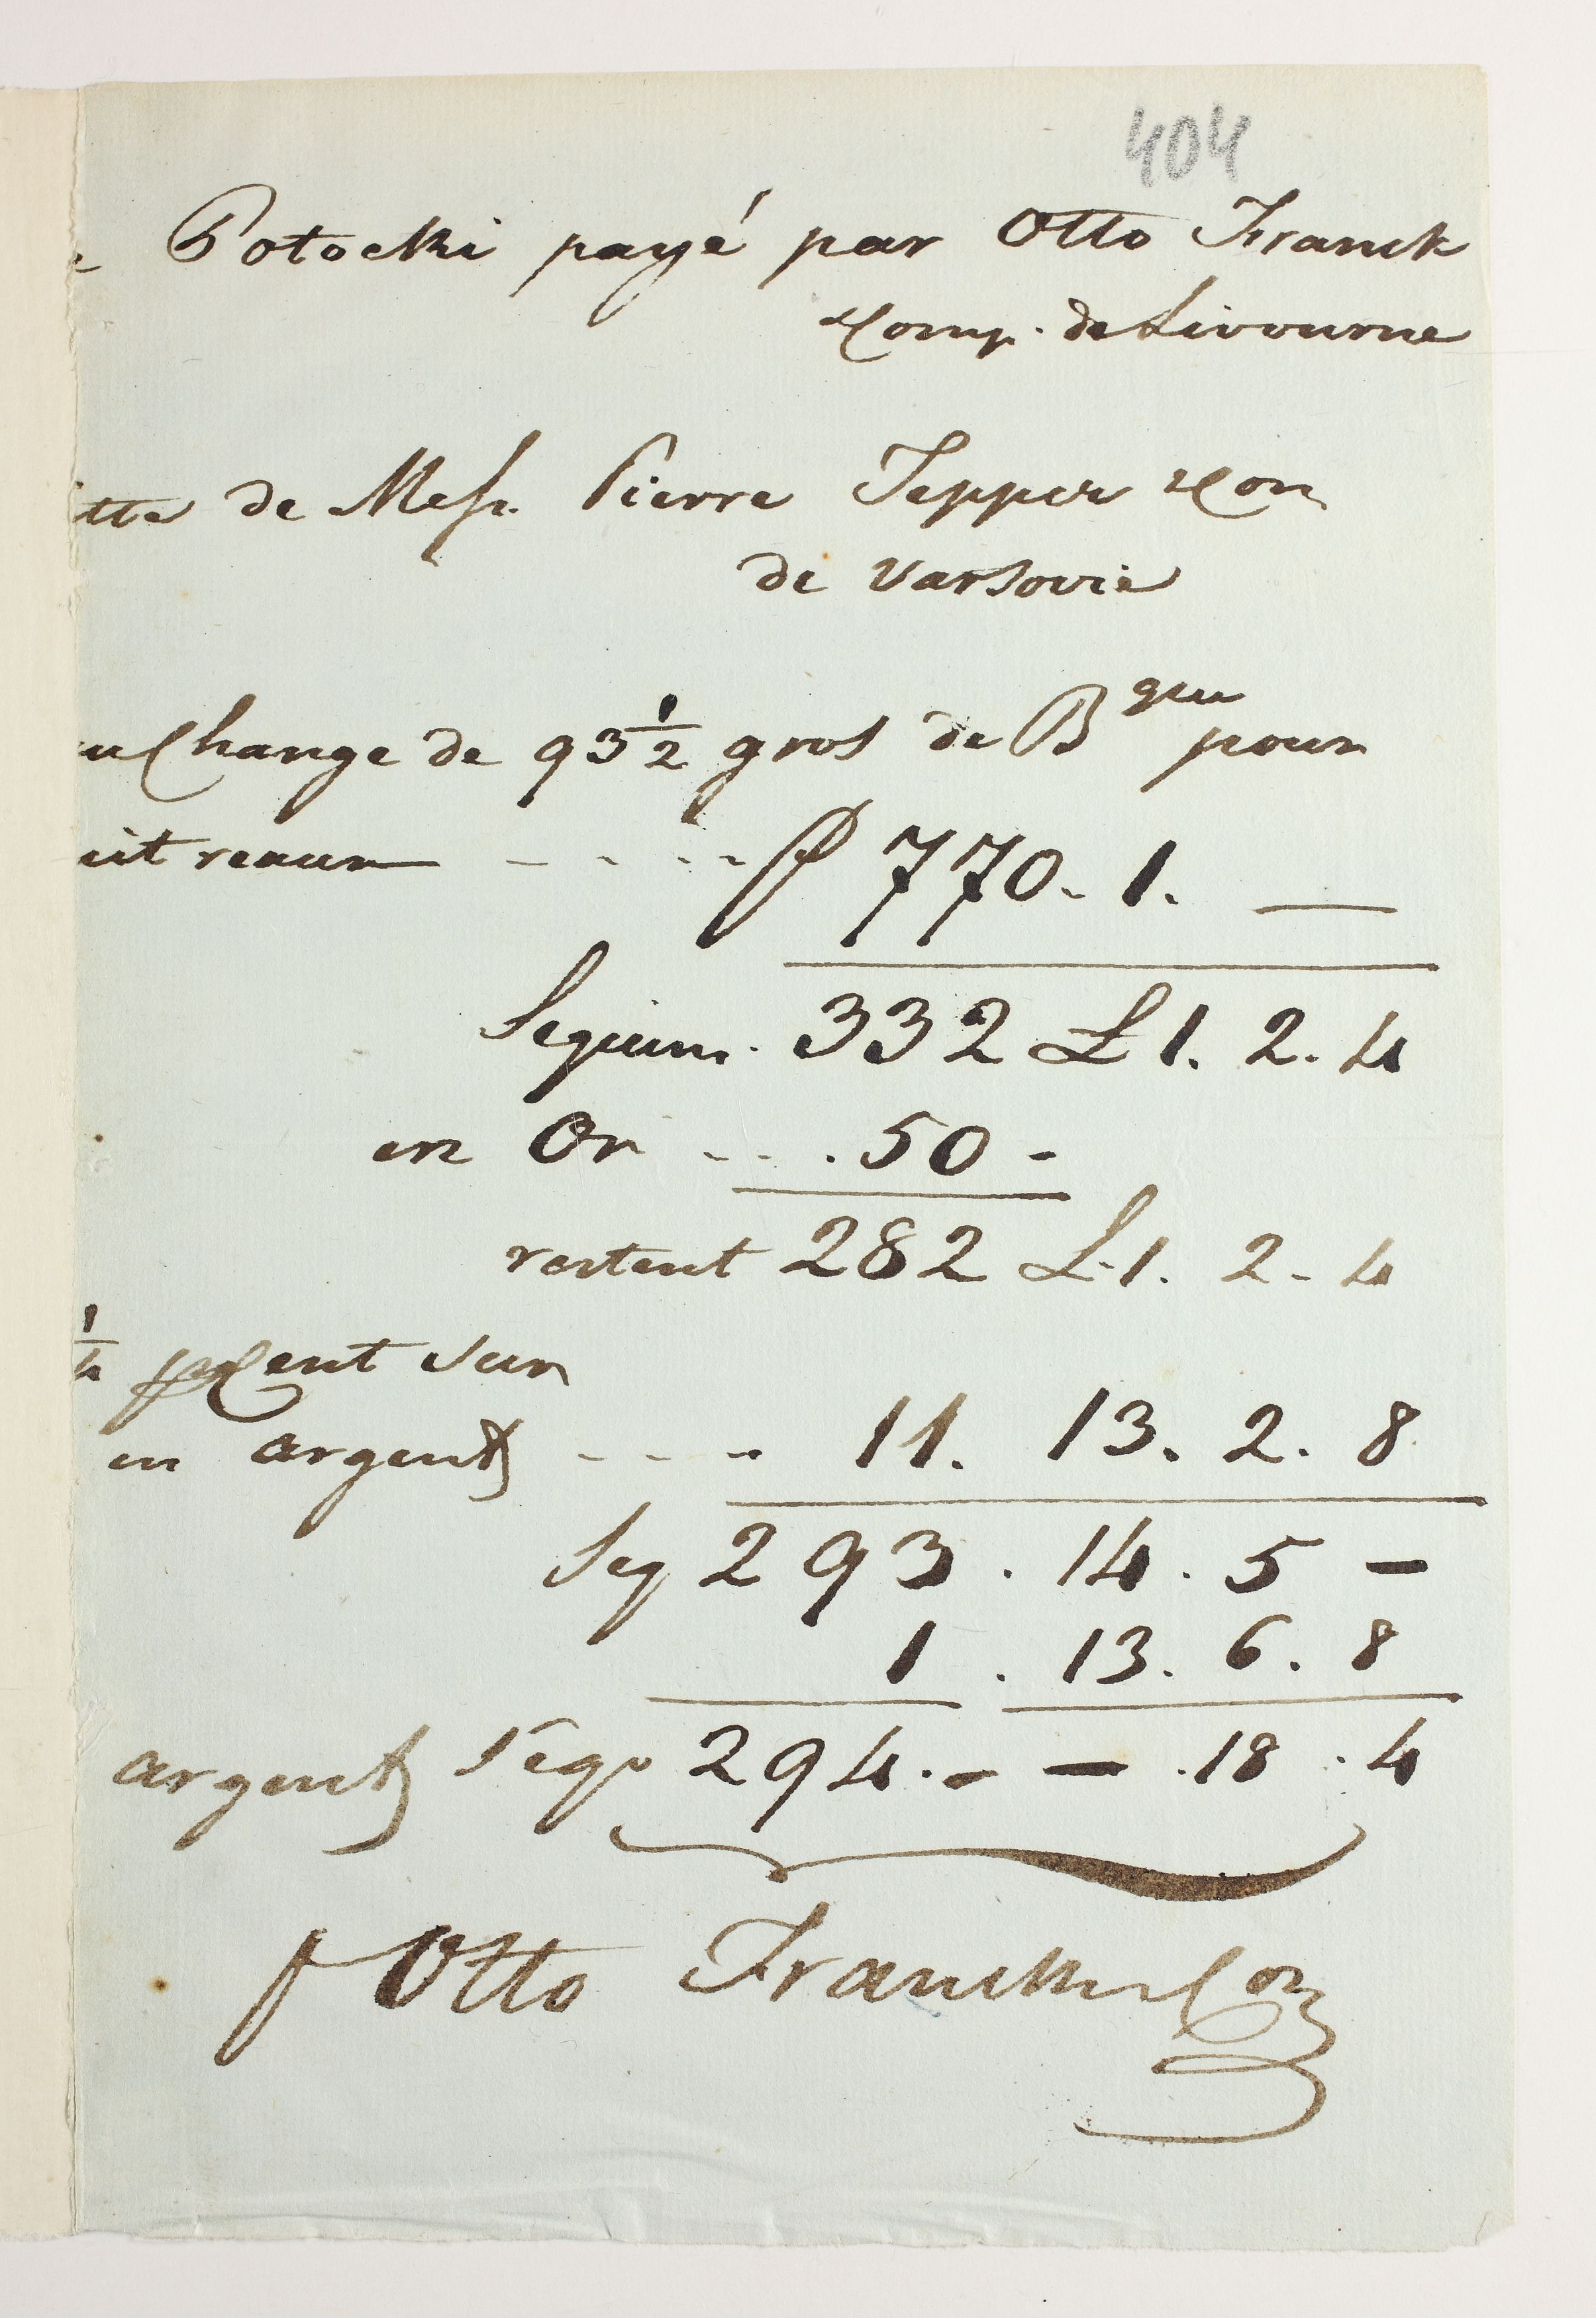 404
Potocki payé par Otto Franck
& Comp. de Livourne
tte de Mess. Pierre Tepper & Con
de Varsovie
Change de 93 1/2 gros de Bque pour
uit reaux - - - - - 770. 1. —
Sequins. 332 £ 1. 2. 4
en Or - - . 50 -
restent 282 £ 1. 2 - 4
Cent sur
en argent - - - - 11. 13. 2. 8
Seq 293 . 14 . 5 —
1 . 13. 6. 8
argent Seqs 294 . - — . 18 . 4
Otto Franck & Con